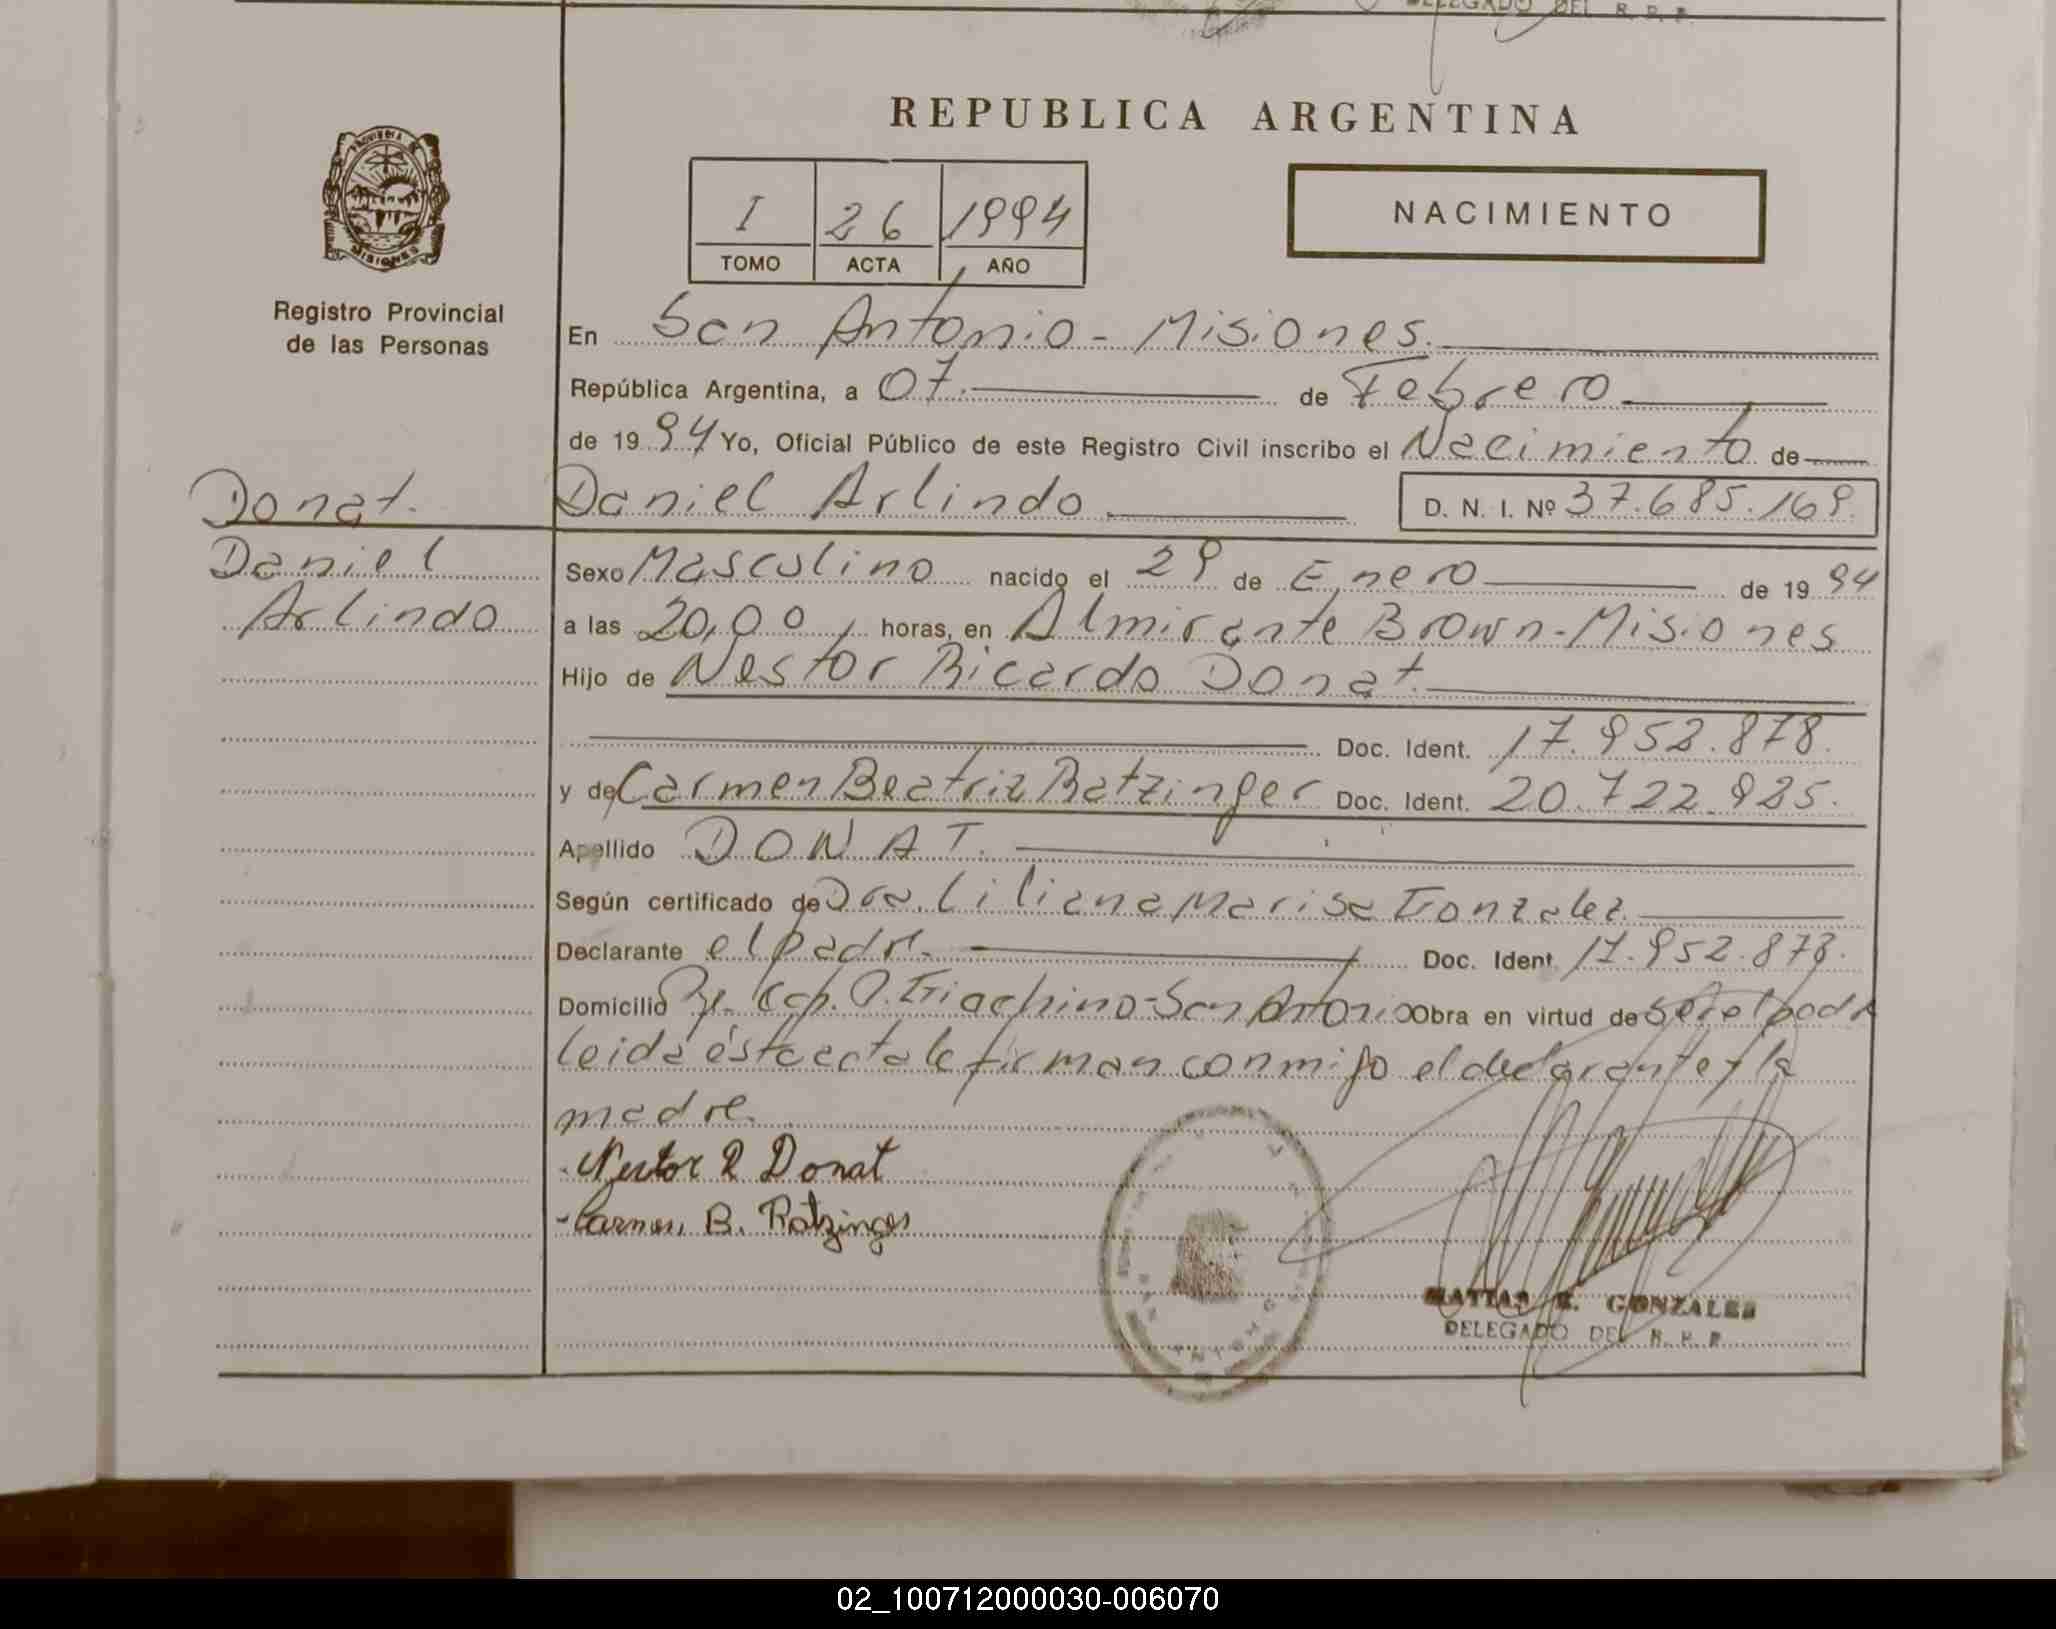 DELEGADO DEL R. P. P.
REPUBLICA ARGENTINA
PROVINCIA DE
MISIONES
I 26 1994
TOMO ACTA AÑO
NACIMIENTO
Registro Provincial
de las Personas
En San Antonio - Misiones.
República Argentina, a 07. de Febrero
de 1994 Yo, Oficial Público de este Registro Civil inscribo el Nacimiento de
Donat. Daniel Arlindo D. N. I. Nº 37.685.169.
Daniel
Arlindo
Sexo Masculino nacido el 29 de Enero de 1994
a las 20,00 horas, en Almirante Brown - Misiones
Hijo de Nestor Ricardo Donat.
Doc. Ident. 17.952.878.
y de Carmen Beatriz Ratzinger Doc. Ident. 20.722.925.
Apellido DONAT.
Según certificado de Dra. Liliana Marisa Gonzalez.
Declarante el padre. Doc. Ident. 17.952.878.
Domicilio Cap. A. Giachino - San Antonio Obra en virtud de ser el padre
leida ésta acta le firman conmigo el declarante y la
madre.
Nestor R Donat
Carmen B. Ratzinger
MATIAS E. GONZALES
DELEGADO DEL R. P. P.
02_100712000030-006070